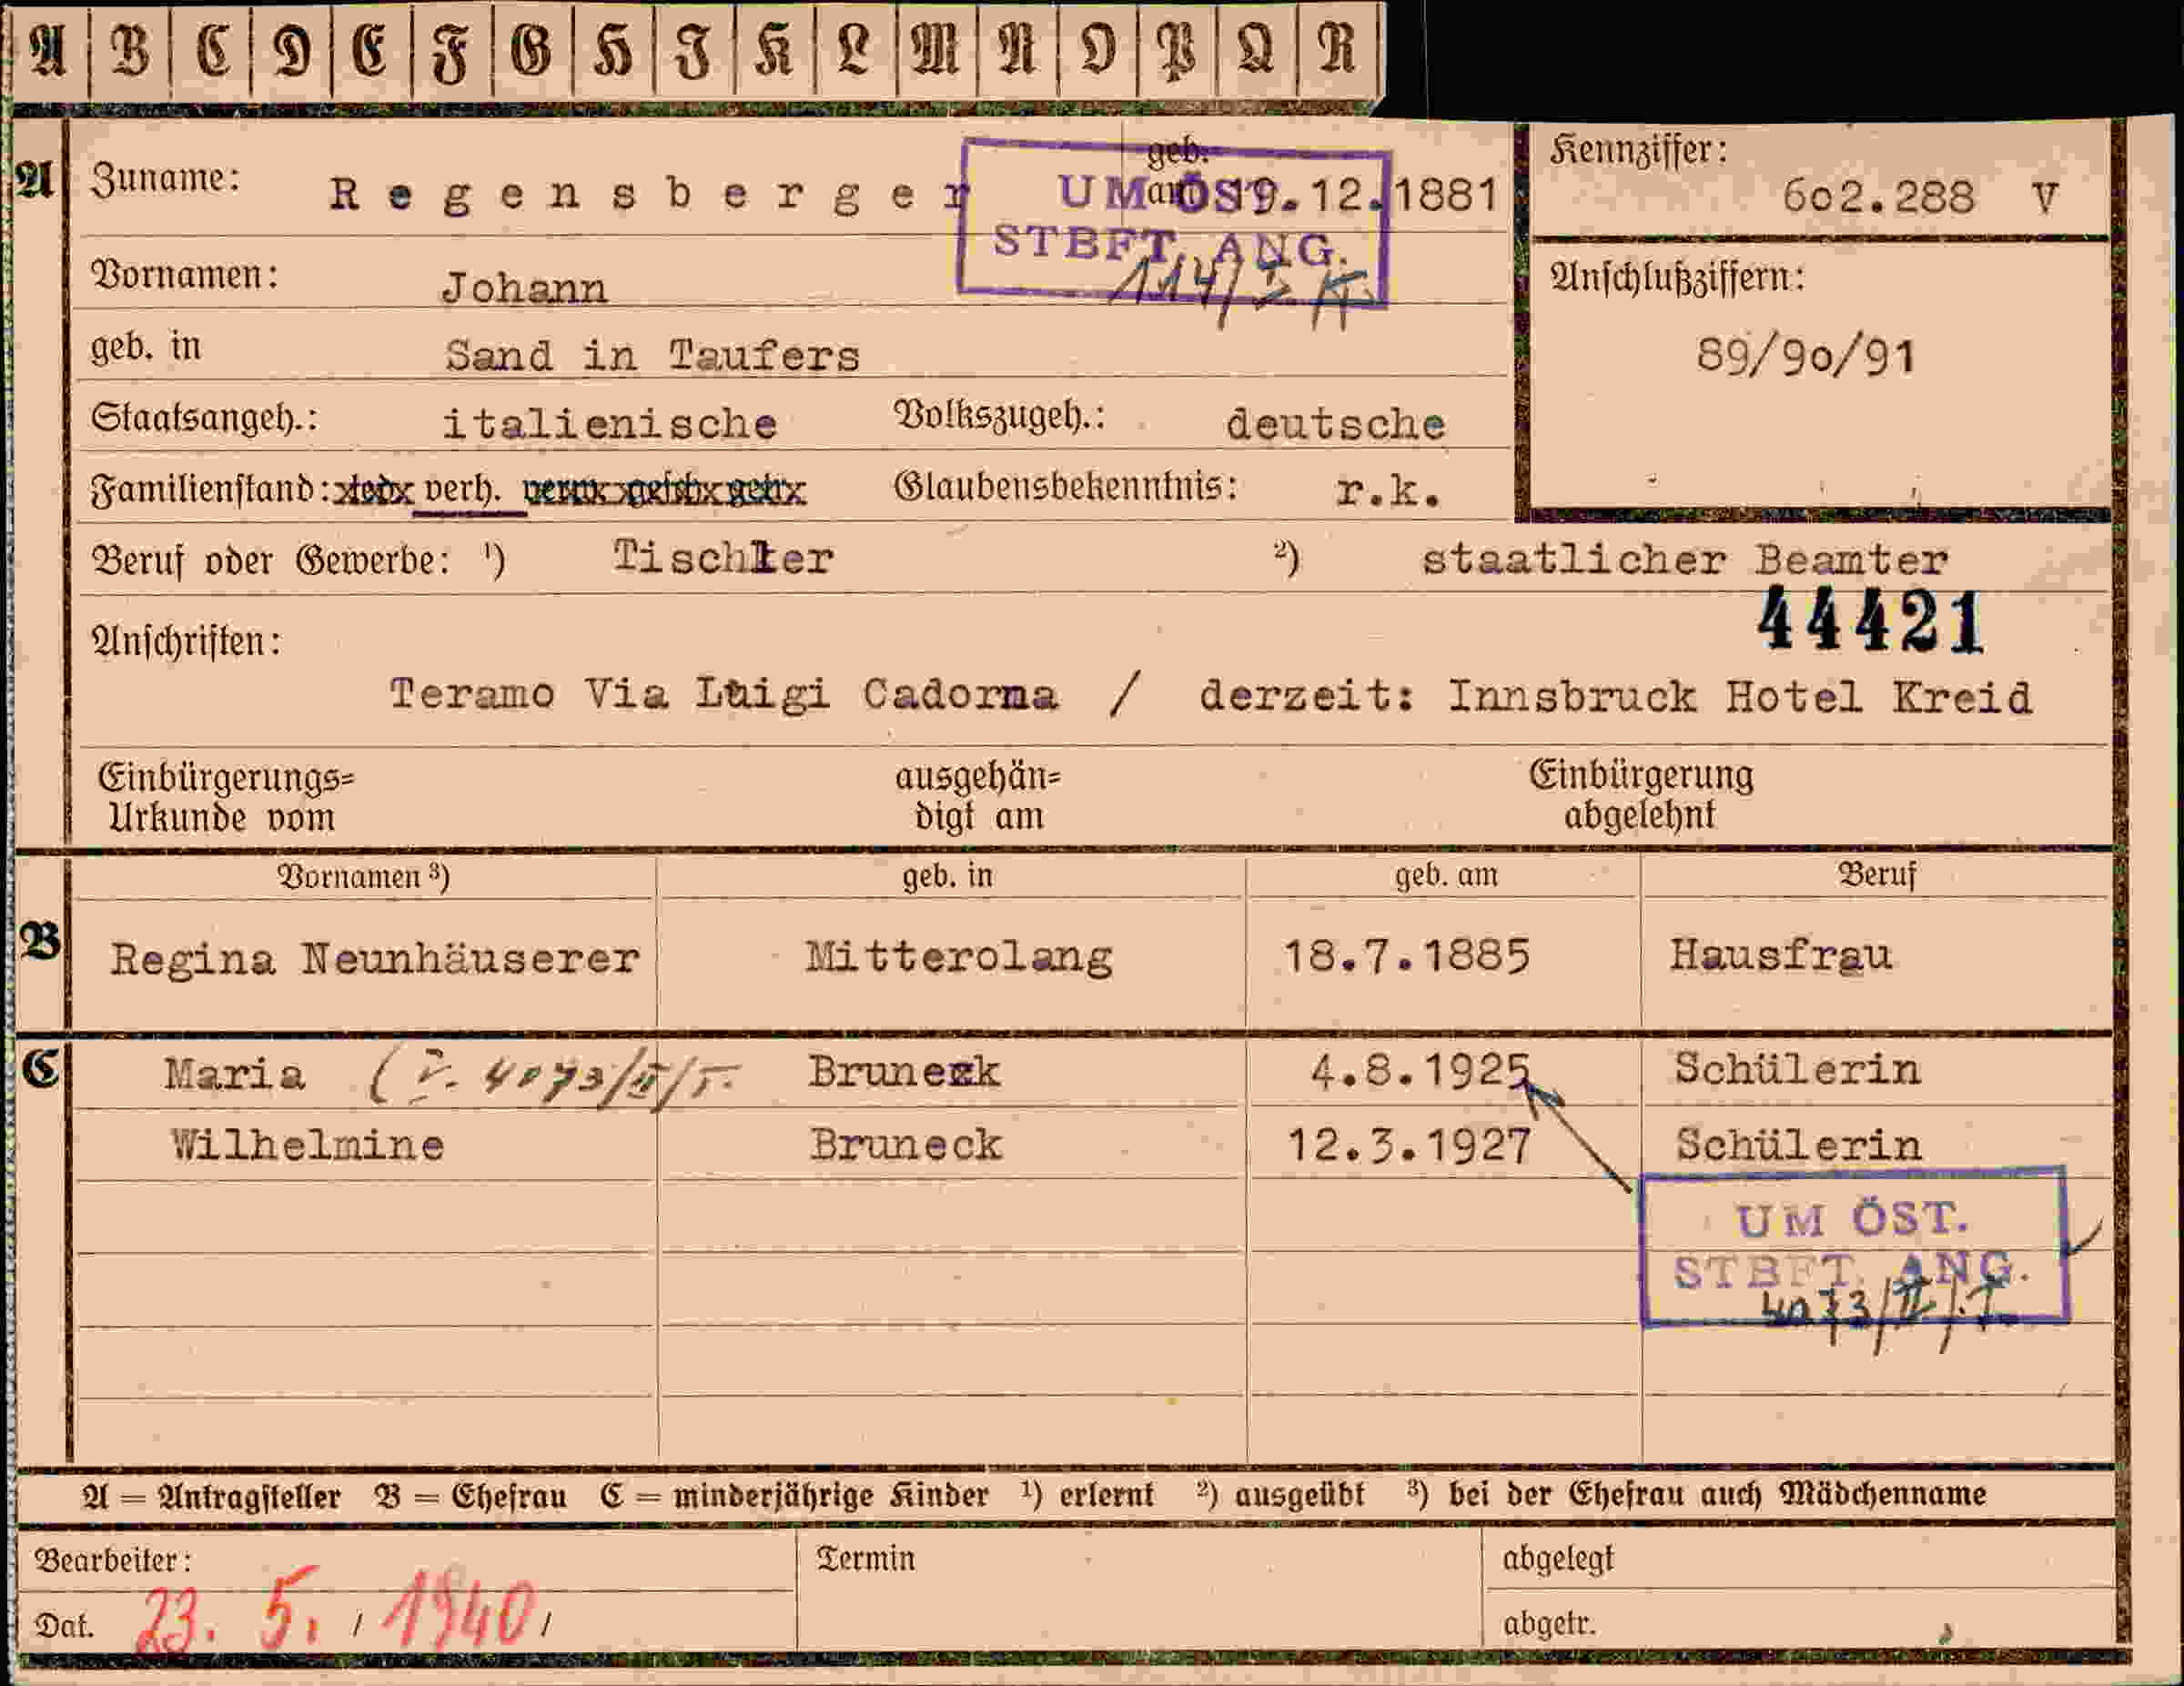 A B C D E F G H I K L M N O P Q R
A Zuname: Regensberger geb. am 19.12.1881
Kennziffer: 602.288 V
UM ÖST.
STBFT. ANG.
Vornamen: Johann
Anschlußziffern:
89/90/91
geb. in Sand in Taufers
Staatsangeh.: italienische Volkszugeh.: deutsche
Familienstand: verh. Glaubensbekenntnis: r.k.
Beruf oder Gewerbe: ¹) Tischler ²) staatlicher Beamter
44421
Anschriften:
Teramo Via Luigi Cadorna / derzeit: Innsbruck Hotel Kreid
Einbürgerungs= ausgehän= Einbürgerung
Urkunde vom digt am abgelehnt
Vornamen ³) geb. in geb. am Beruf
B Regina Neunhäuserer Mitterolang 18.7.1885 Hausfrau
C Maria Bruneck 4.8.1925 Schülerin
Wilhelmine Bruneck 12.3.1927 Schülerin
UM ÖST.
STBFT. ANG.
4073/II/
A = Antragsteller B = Ehefrau C = minderjährige Kinder ¹) erlernt ²) ausgeübt ³) bei der Ehefrau auch Mädchenname
Bearbeiter: Termin abgelegt
Dat. 23. 5. / 1940 / abgetr.